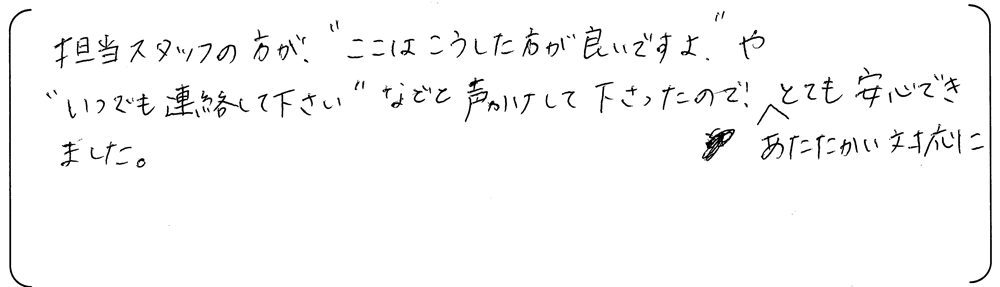 担当スタッフの方が、"ここはこうした方が良いですよ。"や
"いつでも連絡して下さい"などと声かけして下さったので、とても安心でき
あたたかい対応に
ました。